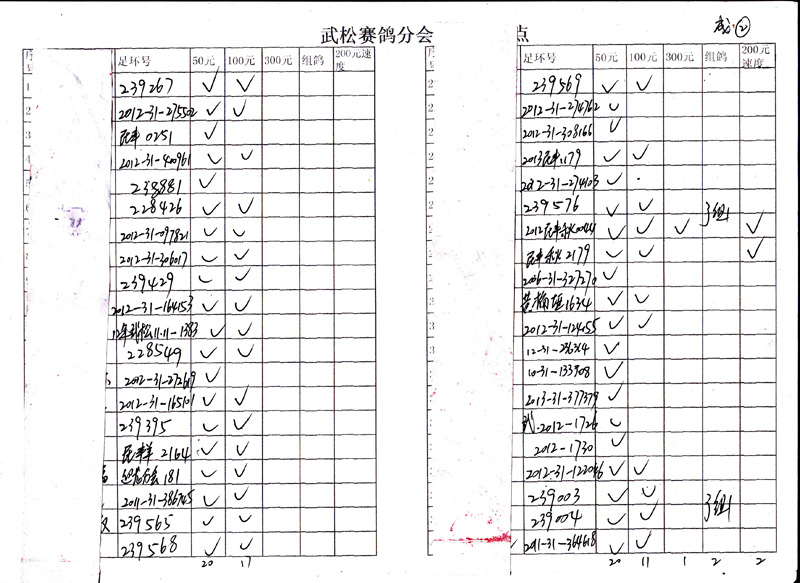 武②
武松赛鸽分会 点
足环号 50元 100元 300元 组鸽 200元速度
239267 ✓ ✓
2012-31-275502 ✓ ✓
民丰 0251 ✓
2012-31-400961 ✓ ✓
238881 ✓
228426 ✓ ✓
2012-31-097821 ✓ ✓
2012-31-306017 ✓ ✓
239429 ✓ ✓
2012-31-164153 ✓ ✓
12年武松11.11-1383 ✓ ✓
228549 ✓ ✓
2012-31-272619 ✓
2012-31-165101 ✓ ✓
239395 ✓ ✓
2164 ✓ ✓
181 ✓ ✓
2011-31-386745 ✓ ✓
239565 ✓ ✓
239568 ✓ ✓
20 17
足环号 50元 100元 300元 组鸽 200元速度
239569 ✓ ✓
2012-31-274762 ✓
2012-31-308166 ✓
2013民丰1179 ✓ ✓
2012-31-274103 ✓
239576 ✓ ✓
2012民丰 00244 ✓ ✓ ✓ ✓
民丰 2179 ✓ ✓ ✓
2006-31-327270 ✓
1634 ✓ ✓
2012-31-124055 ✓ ✓
12-31-236324 ✓
10-31-133908 ✓
2013-31-377379 ✓
武.2012-1726 ✓
2012-1730 ✓
2012-31-122046 ✓ ✓
239003 ✓ ✓
239004 ✓ ✓
2011-31-364618 ✓ ✓
20 11 1 2 2